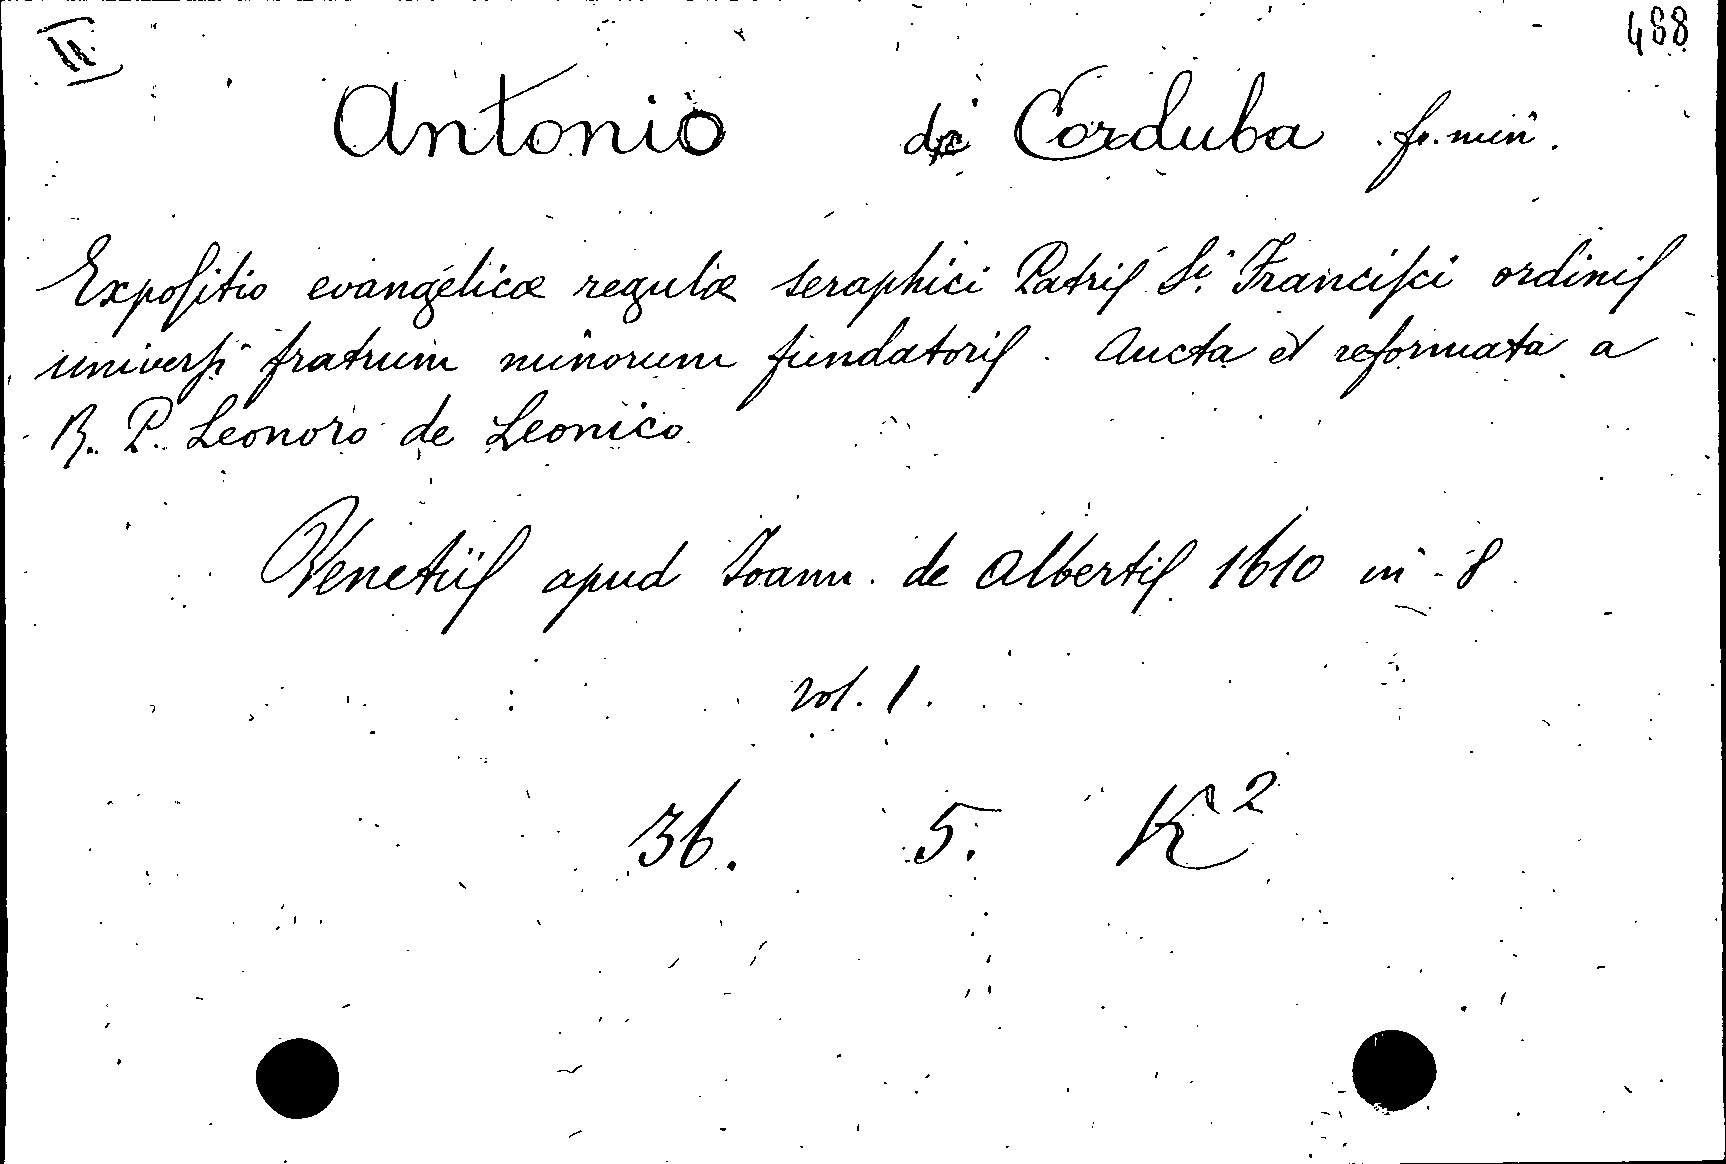 II. 468
Antonio de Corduba fr. min.
Expositio evangelicæ regulæ seraphici Patris Sⁱ. Francisci ordinis
universi fratrum minorum fundatoris. Aucta et reformata a
R. P. Leonoro de Leonico
Venetiis apud Ioann. de Albertis 1610 in-8
vol. 1.
36. 5. K²